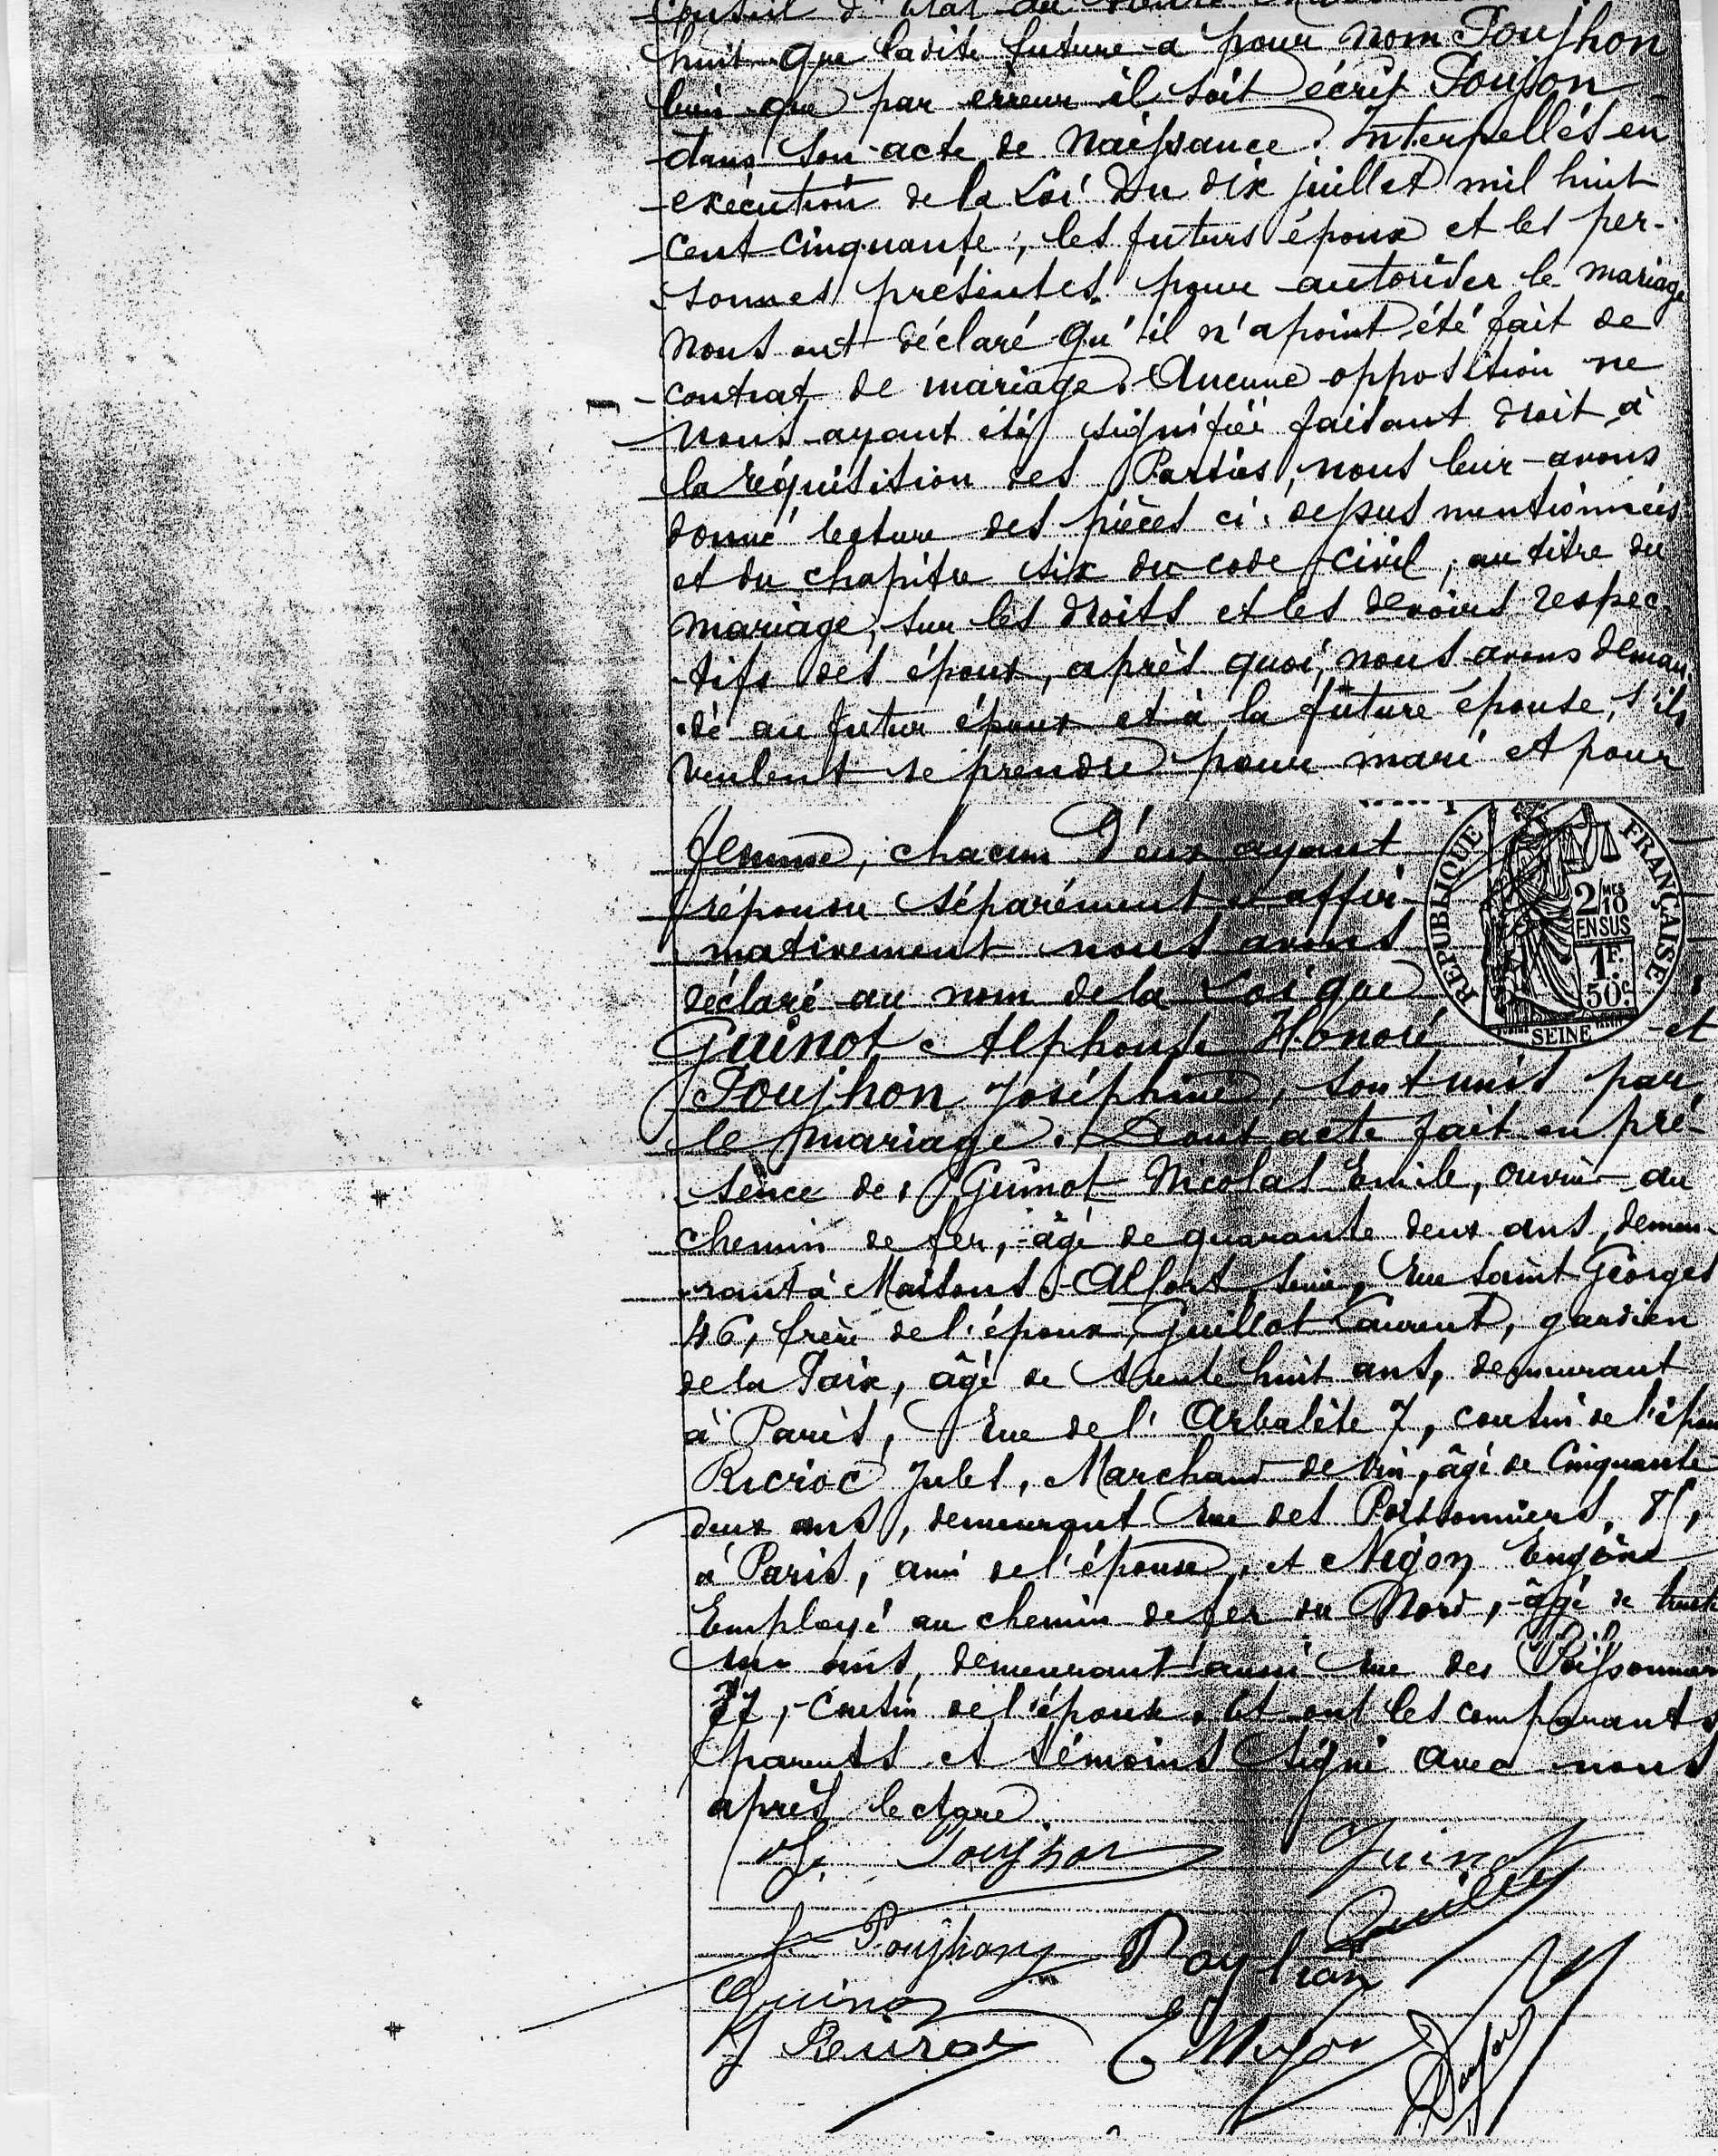 Conseil d'Etat du
huit que ladite future a pour nom Poujhon
bien que par erreur il soit écrit Poujon
dans son acte de naissance. Interpellés en
exécution de la Loi du dix juillet mil huit
cent cinquante, les futurs époux et les per-
sonnes présentes pour autoriser le mariage
nous ont déclaré qu'il n'a point été fait de
contrat de mariage. Aucune opposition ne
nous ayant été signifiée faisant droit à
la réquisition des Parties, nous leur avons
donné lecture des pièces ci-dessus mentionnées
et du chapitre six du code civil, au titre du
mariage, sur les droits et les devoirs respec-
tifs des époux, après quoi, nous avons deman-
dé au futur époux et à la future épouse, s'ils
veulent se prendre pour mari et pour
femme, chacun d'eux ayant
répondu séparément et affir-
mativement nous avons
déclaré au nom de la Loi que
Guinot Alphonse Honoré et
Poujhon Joséphine, sont unis par
le mariage. Dont acte fait en pré-
sence de, Guinot Nicolas Emile, ouvrier au
chemin de fer, âgé de quarante deux ans, demeu-
rant à Maisons-Alfort, Seine, rue Saint Georges
46, frère de l'époux, Guillot Laurent, gardien
de la Paix, âgé de trente huit ans, demeurant
à Paris, rue de l'Arbalète 7, cousin de l'époux
Jules, Marchand de vin, âgé de Cinquante
deux ans, demeurant rue des Poissonniers,
à Paris, ami de l'épouse, et Nigon Eugène
Employé au chemin de fer du Nord, âgé de trente
un ans, demeurant aussi rue des Poissonniers
77, cousin de l'époux. Et ont les comparants
parents et témoins signé avec nous
après lecture.
J. Poujhon Guinot
Guillot
J. Poujhon Poujhon
Guinot
E Nigon
RÉPUBLIQUE FRANÇAISE
2/10 MES
EN SUS
1F.
50c.
SEINE